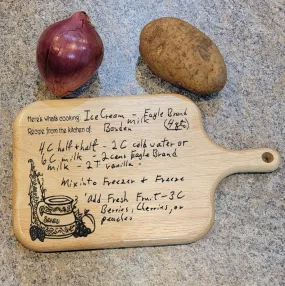 Here's what's cooking: Ice Cream - Eagle Brand
milk (4 qts)
Recipe from the kitchen of: Borden
4C half + half - 2C cold water or
6C milk - 2 cans Eagle Brand
milk - 2T vanilla -
Mix into Freezer + Freeze
Add Fresh Fruit - 3C
Berries, Cherries, or
peaches